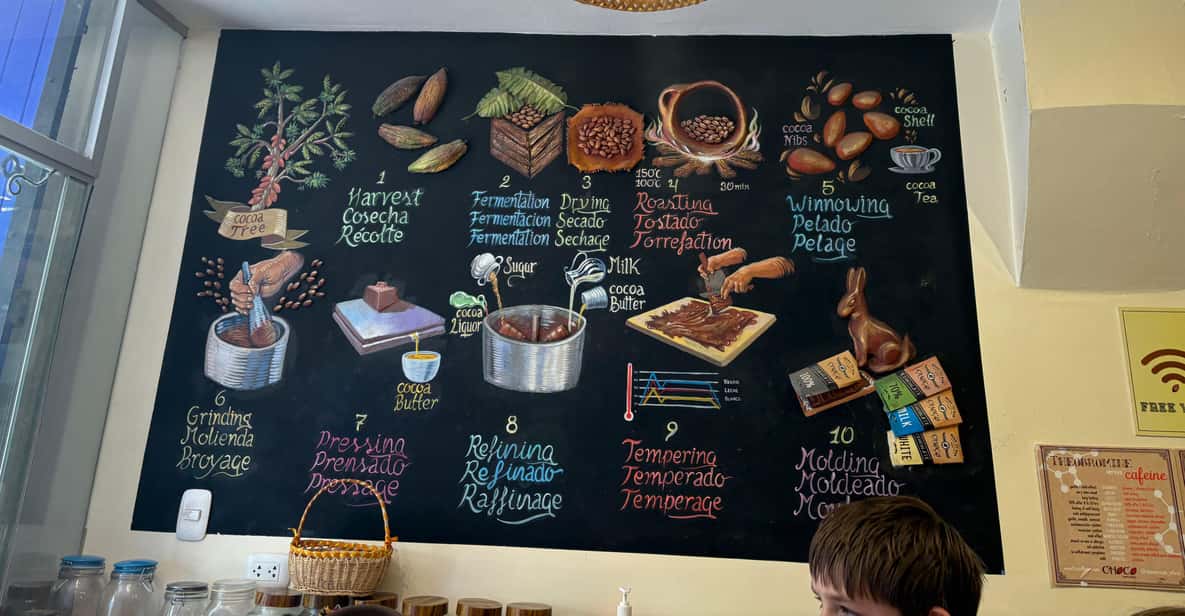 cocoa
Tree
1
Harvest
Cosecha
Récolte
2
Fermentation
Fermentacion
Fermentation
3
Drying
Secado
Sechage
150°C
100°C
4
30min
Roasting
Tostado
Torrefaction
cocoa
Nibs
cocoa
Shell
cocoa
Tea
5
Winnowing
Pelado
Pelage
6
Grinding
Molienda
Broyage
cocoa
Butter
7
Pressing
Prensado
Pressage
Sugar
Milk
cocoa
Butter
cocoa
Liquor
8
Refining
Refinado
Raffinage
9
Tempering
Temperado
Temperage
100%
70%
MILK
WHITE
10
Molding
Moldeado
FREE
THEOBROMINE
cafeine
CHOCO